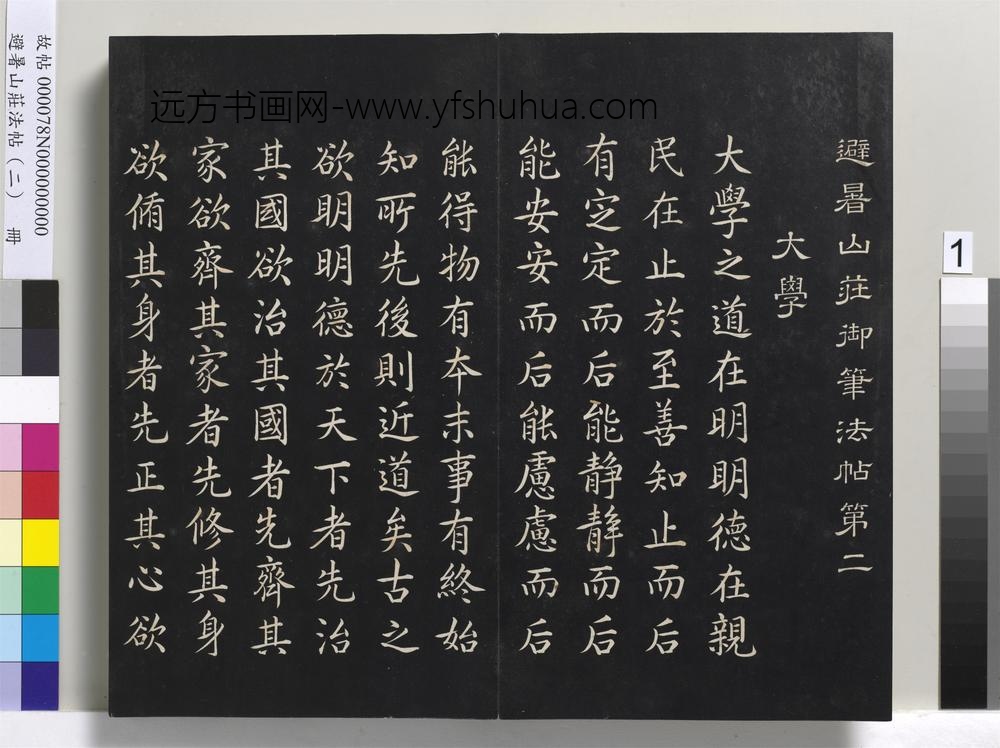 避暑山莊御筆法帖第二
大學
大學之道在明明德在親
民在止於至善知止而后
有定定而后能靜靜而后
能安安而后能慮慮而后
能得物有本末事有終始
知所先後則近道矣古之
欲明明德於天下者先治
其國欲治其國者先齊其
家欲齊其家者先修其身
欲脩其身者先正其心欲
远方书画网-www.yfshuhua.com
故帖 000078N000000000
避暑山莊法帖（二） 冊
1